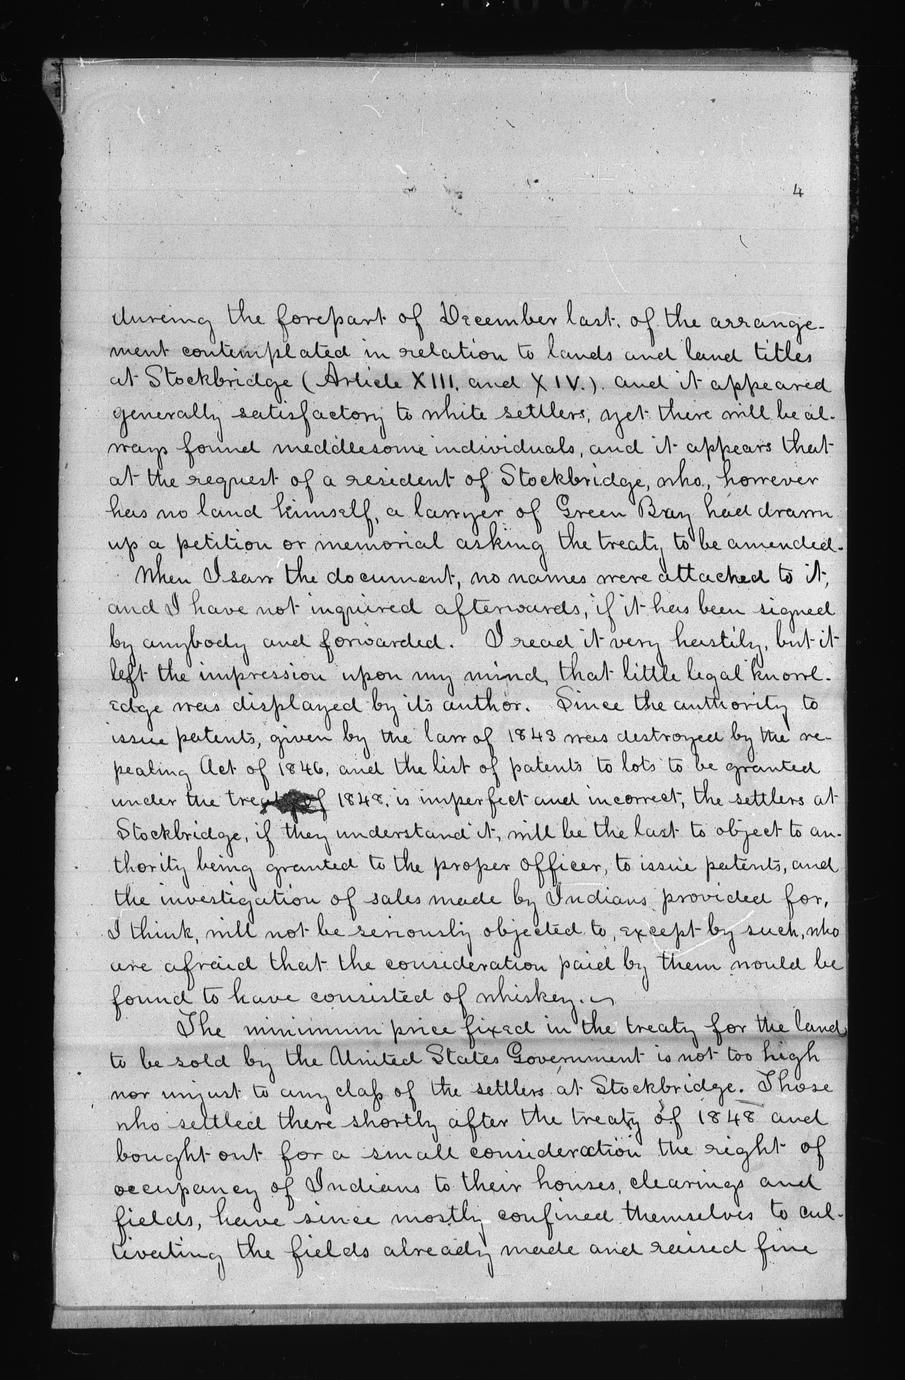 4
dureing the forepart of December last. of the arrange-
ment contemplated in relation to lands and land titles
at Stockbridge (Article XIII. and XIV.). and it appeared
generally satisfactory to white settlers, yet there will be al-
ways found meddlesome individuals, and it appears that
at the request of a resident of Stockbridge, who, however
has no land himself, a lawyer of Green Bay had drawn
up a petition or memorial asking the treaty to be amended.
When I saw the document, no names were attached to it,
and I have not inquired afterwards, if it has been signed
by anybody and forwarded. I read it very hastily, but it
left the impression upon my mind, that little legal knowl-
edge was displayed by its author. Since the authority to
issue patents, given by the law of 1843 was destroyed by the re-
pealing Act of 1846, and the list of patents to lots to be granted
under the treaty of 1848, is imperfect and incorrect, the settlers at
Stockbridge, if they understand it, will be the last to object to au-
thority being granted to the proper officer, to issue patents, and
the investigation of sales made by Indians provided for,
I think, will not be seriously objected to, except by such, who
are afraid that the consideration paid by them would be
found to have consisted of whiskey.
The minimum price fixed in the treaty for the land
to be sold by the United States Government is not too high
nor unjust to any class of the settlers at Stockbridge. Those
who settled there shortly after the treaty of 1848 and
bought out for a small consideration the right of
occupancy of Indians to their houses, clearings and
fields, have since mostly confined themselves to cul-
tivating the fields already made and raised fine